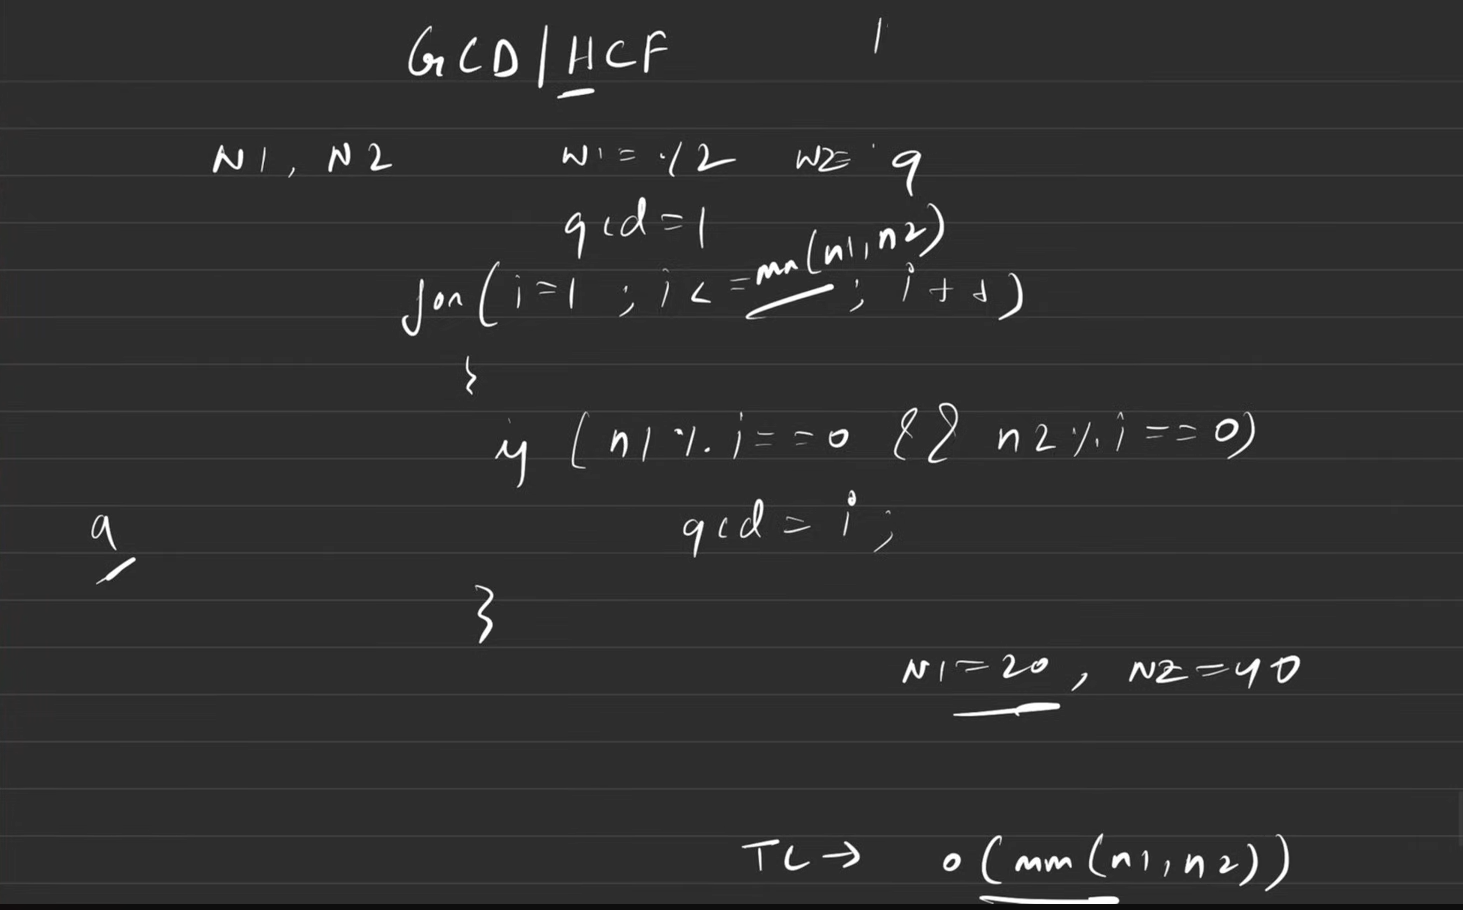 GCD/HCF
N1, N2 N1=12 N2=9
gcd=1
for(i=1; i<=min(n1,n2); i++)
{
if (n1%i==0 && n2%i==0)
gcd=i;
9
}
N1=20, N2=40
TC→ O(min(n1,n2))